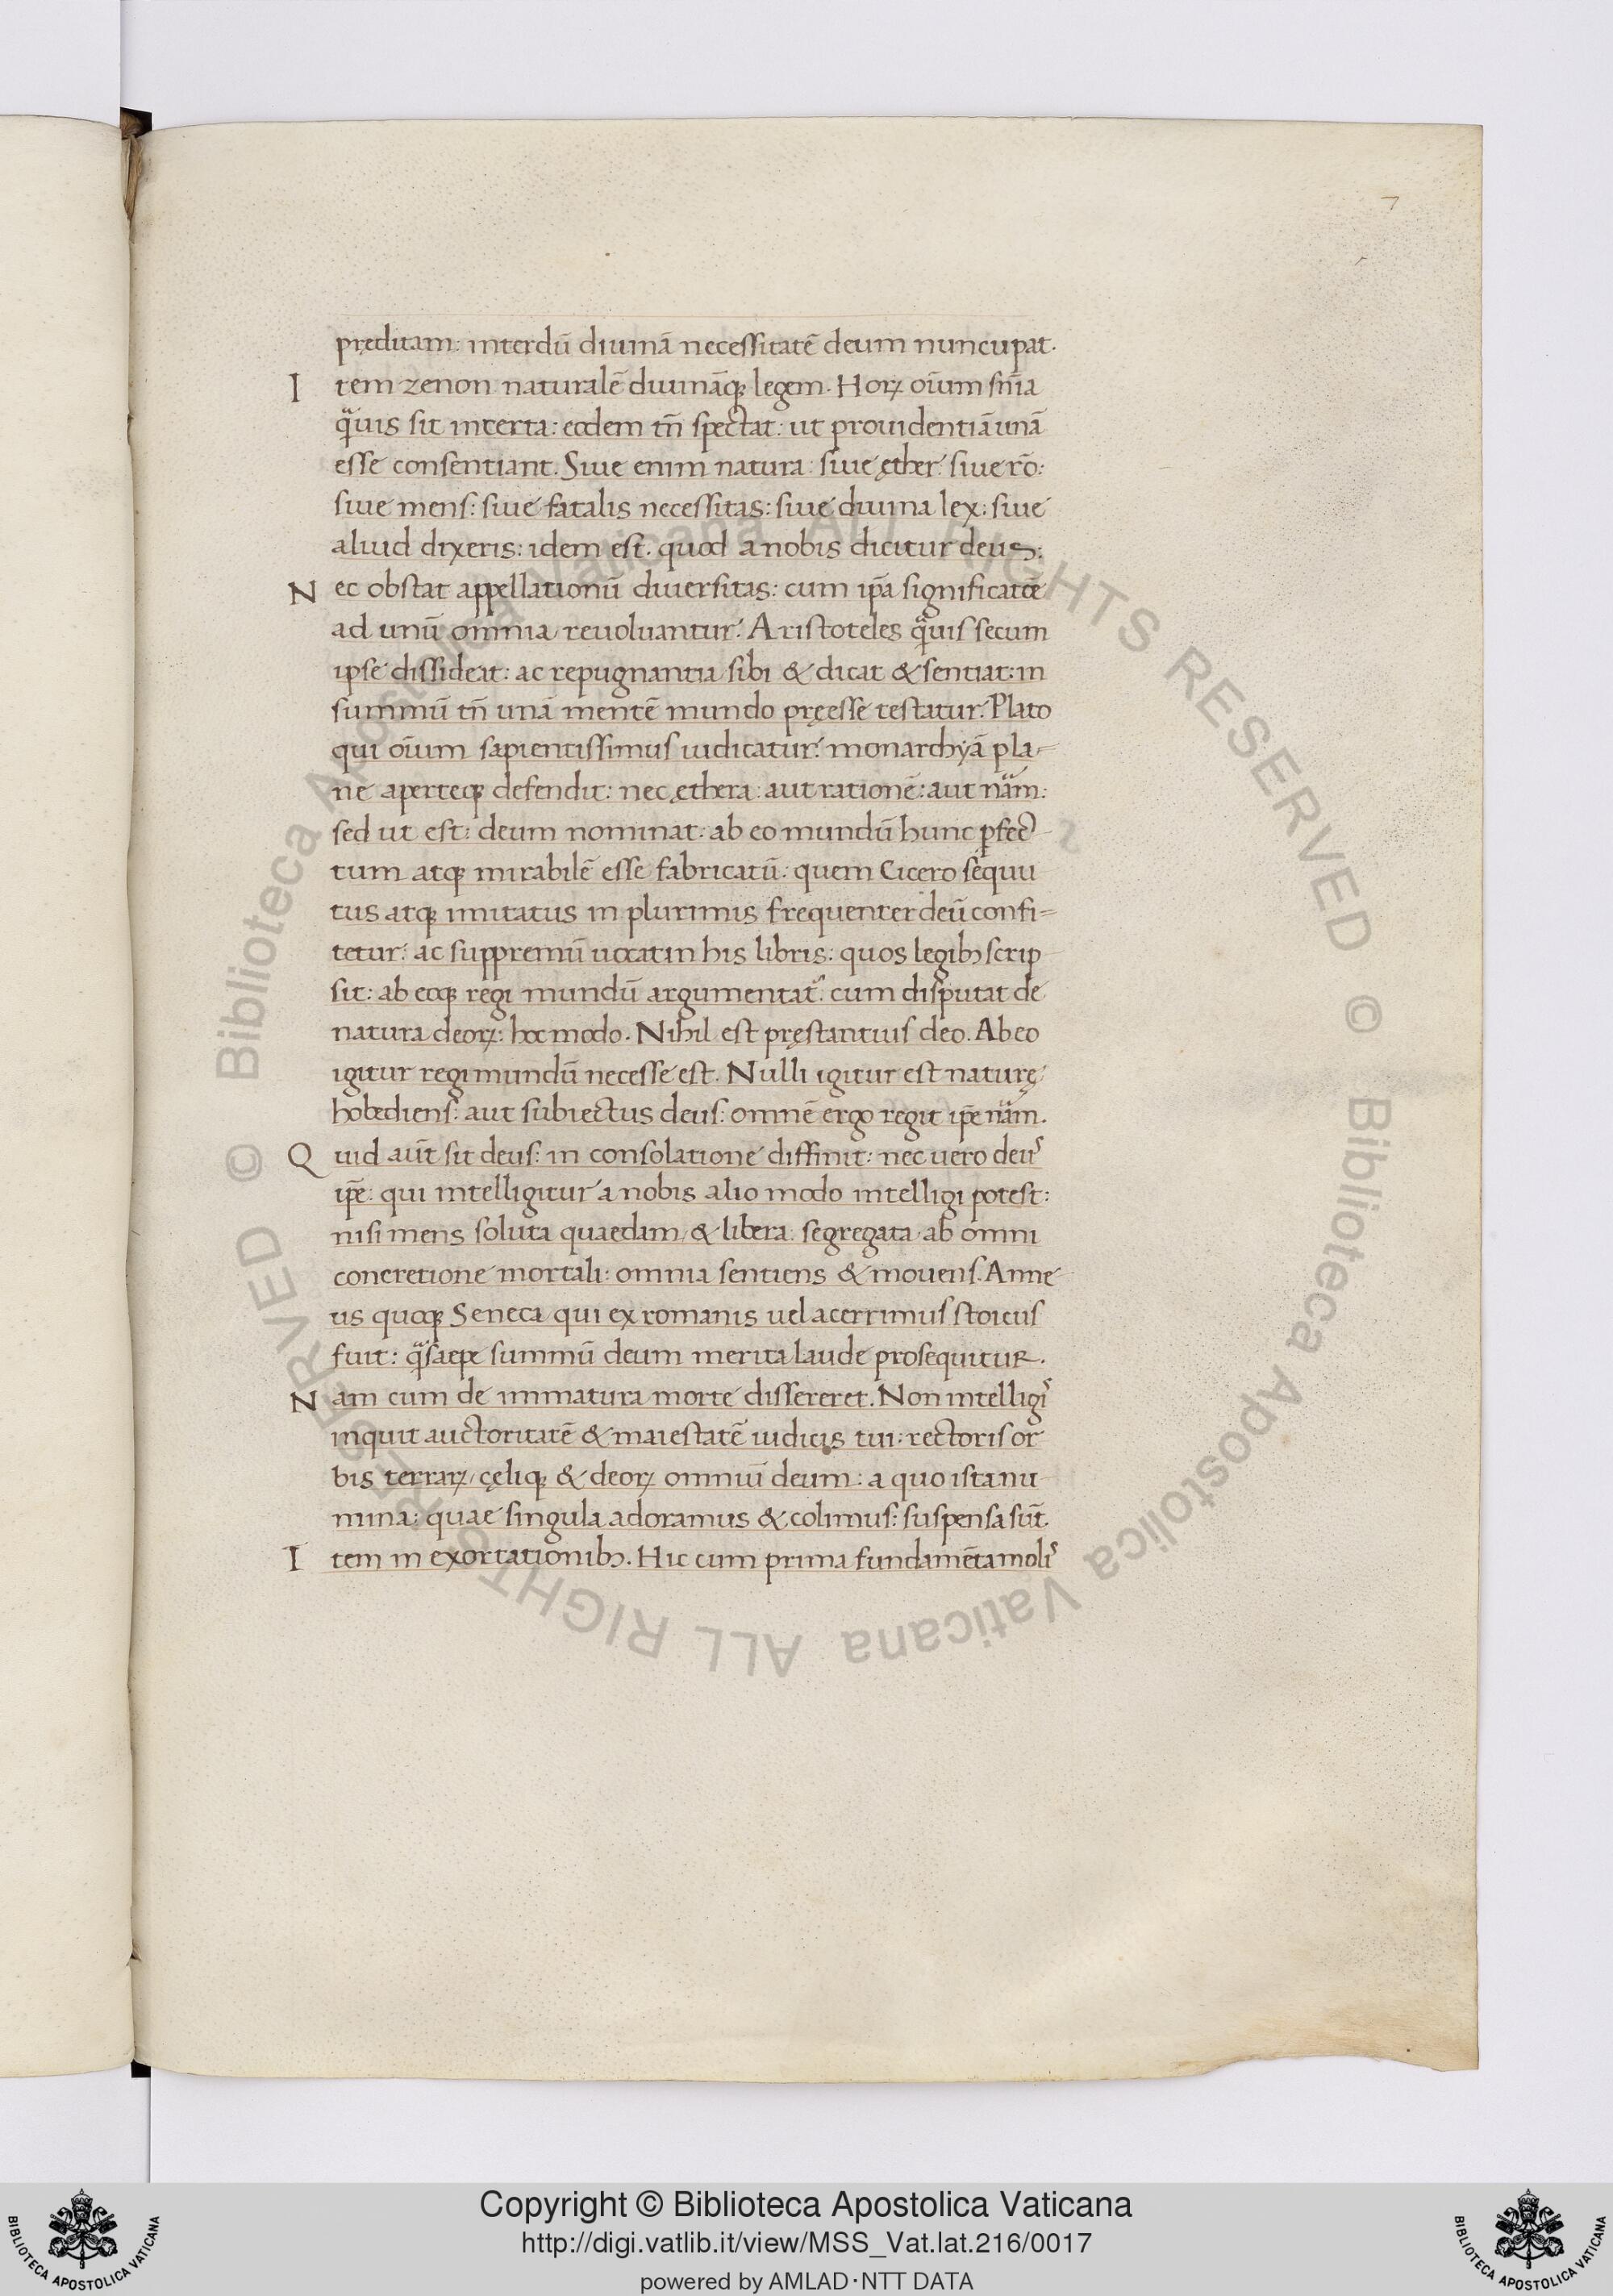 7
pręditam: interdū diuinā necessitatē deum nuncupat.
I tem zenon naturalē diuināq; legem. Horꝝ oīum sn̄ia
qͣuis sit incerta: eodem tn̄ spectat: ut prouidentiā unā
esse consentiant. Siue enim natura: siue ęther: siue rō:
siue mens: siue fatalis necessitas: siue diuina lex: siue
aliud dixeris: idem est. quod a nobis dicitur deus:
N ec obstat appellationū diuersitas: cum ip̄a significatōe
ad unū omnia reuoluantur. Aristoteles qͣuis secum
ipse dissideat: ac repugnantia sibi & dicat & sentiat: in
summū tn̄ unā mentē mundo pręesse testatur. Plato
qui oīum sapientissimus iudicatur: monarchyā pla=
ne aperteq; defendit: nec ęthera: aut rationē: aut nāͣm:
sed ut est: deum nominat: ab eo mundū hunc ꝑfec
tum atq; mirabilē esse fabricatū: quem Cicero sequu
tus atq; imitatus in plurimis frequenter deū confi=
tetur: ac suppremū uocat in his libris: quos legibꝫ scrip
sit: ab eoq; regi mundū argumentat᷑: cum disputat de
natura deorꝝ: hoc modo. Nihil est pręstantius deo. Ab eo
igitur regi mundū necesse est. Nulli igitur est naturę
hobediens: aut subiectus deus: omnē ergo regit ip̄e nāͣm.
Q uid aūt sit deus: in consolatione diffinit: nec uero deuˢ
ip̄e: qui intelligitur a nobis alio modo intelligi potest:
nisi mens soluta quaedam & libera: segregata ab omni
concretione mortali: omnia sentiens & mouens. Anne
us quoq; Seneca qui ex romanis uel acerrimus stoicus
fuit: qͣsaepe summū deum merita laude prosequitur.
N am cum de immatura morte dissereret. Non intelligiˢ
inquit auctoritatē & maiestatē iudicis tui: rectoris or
bis terrarꝝ, cęliq; & deorꝝ omniū deum: a quo ista nu
mina: quae singula adoramus & colimus: suspensa sūt.
I tem in exortationibꝫ. Hic cum prima fundamēta moliˢ
Copyright © Biblioteca Apostolica Vaticana
http://digi.vatlib.it/view/MSS_Vat.lat.216/0017
powered by AMLAD·NTT DATA
BIBLIOTECA APOSTOLICA VATICANA
BIBLIOTECA APOSTOLICA VATICANA
© Biblioteca Apostolica Vaticana ALL RIGHTS RESERVED © Biblioteca Apostolica Vaticana ALL RIGHTS RESERVED